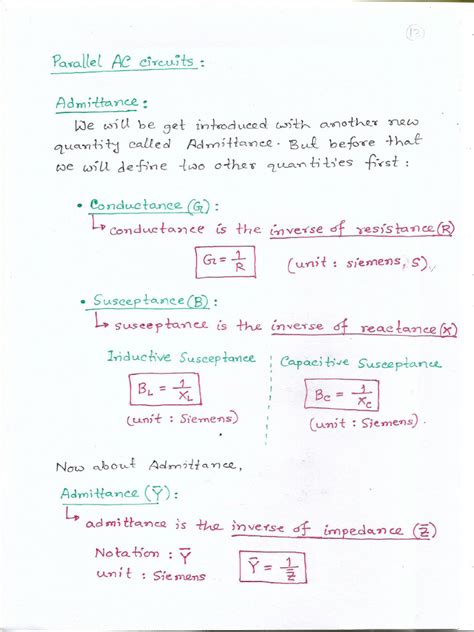 13
Parallel AC circuits :
Admittance :
We will be get introduced with another new
quantity called Admittance. But before that
we will define two other quantities first :
• Conductance (G) :
↳ conductance is the inverse of resistance (R)
G = 1/R (unit : siemens, S)
• Susceptance (B) :
↳ susceptance is the inverse of reactance (X)
Inductive Susceptance Capacitive Susceptance
B_L = 1/X_L B_C = 1/X_C
(unit : Siemens) (unit : Siemens).
Now about Admittance,
Admittance (Ȳ) :
↳ admittance is the inverse of impedance (Z̄)
Notation : Ȳ Ȳ = 1/Z̄
unit : Siemens